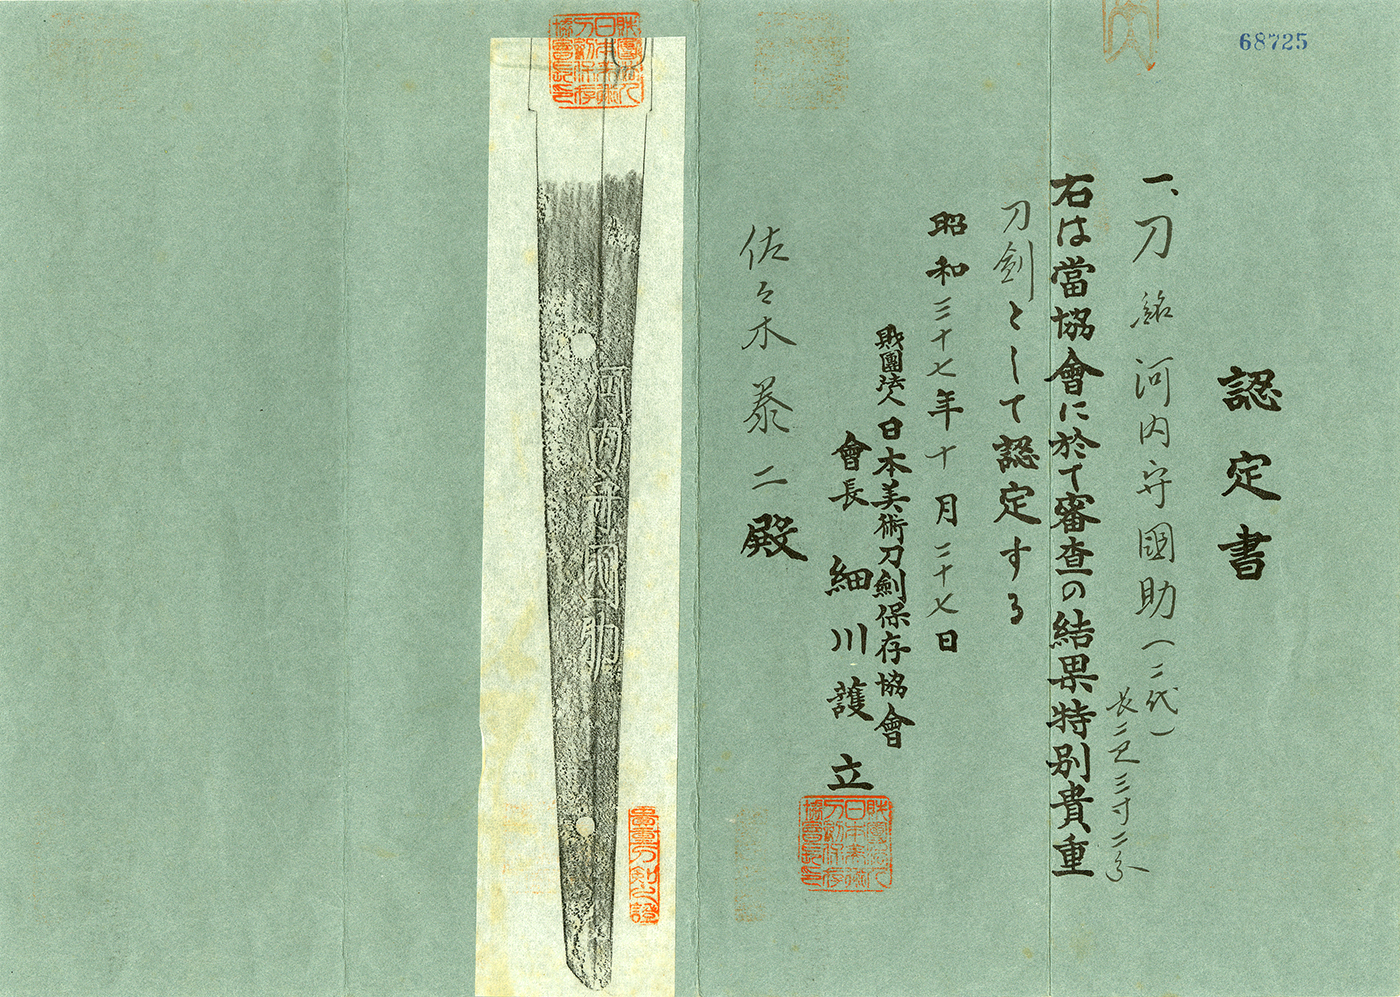 68725
認定書
一、刀 銘 河内守國助(二代)
長二尺三寸二分
右は當協會に於て審査の結果特別貴重
刀剣として認定する
昭和三十七年十月二十七日
財團法人日本美術刀劍保存協會
會長 細川護立
佐々木泰二殿
河内守國助
財團法人日本美術刀劍保存協會長之印
貴重刀剣之證